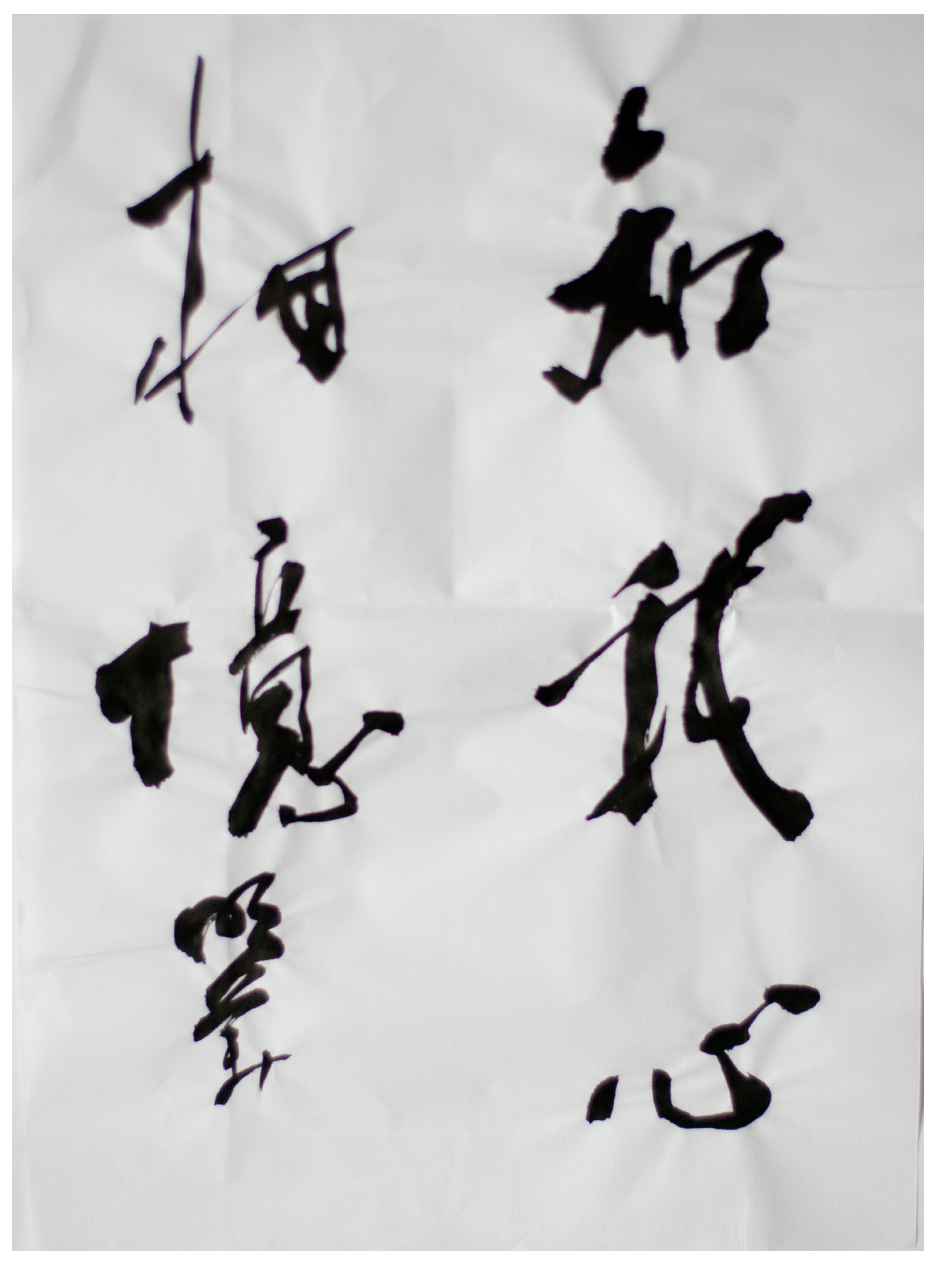 知我心
相憶